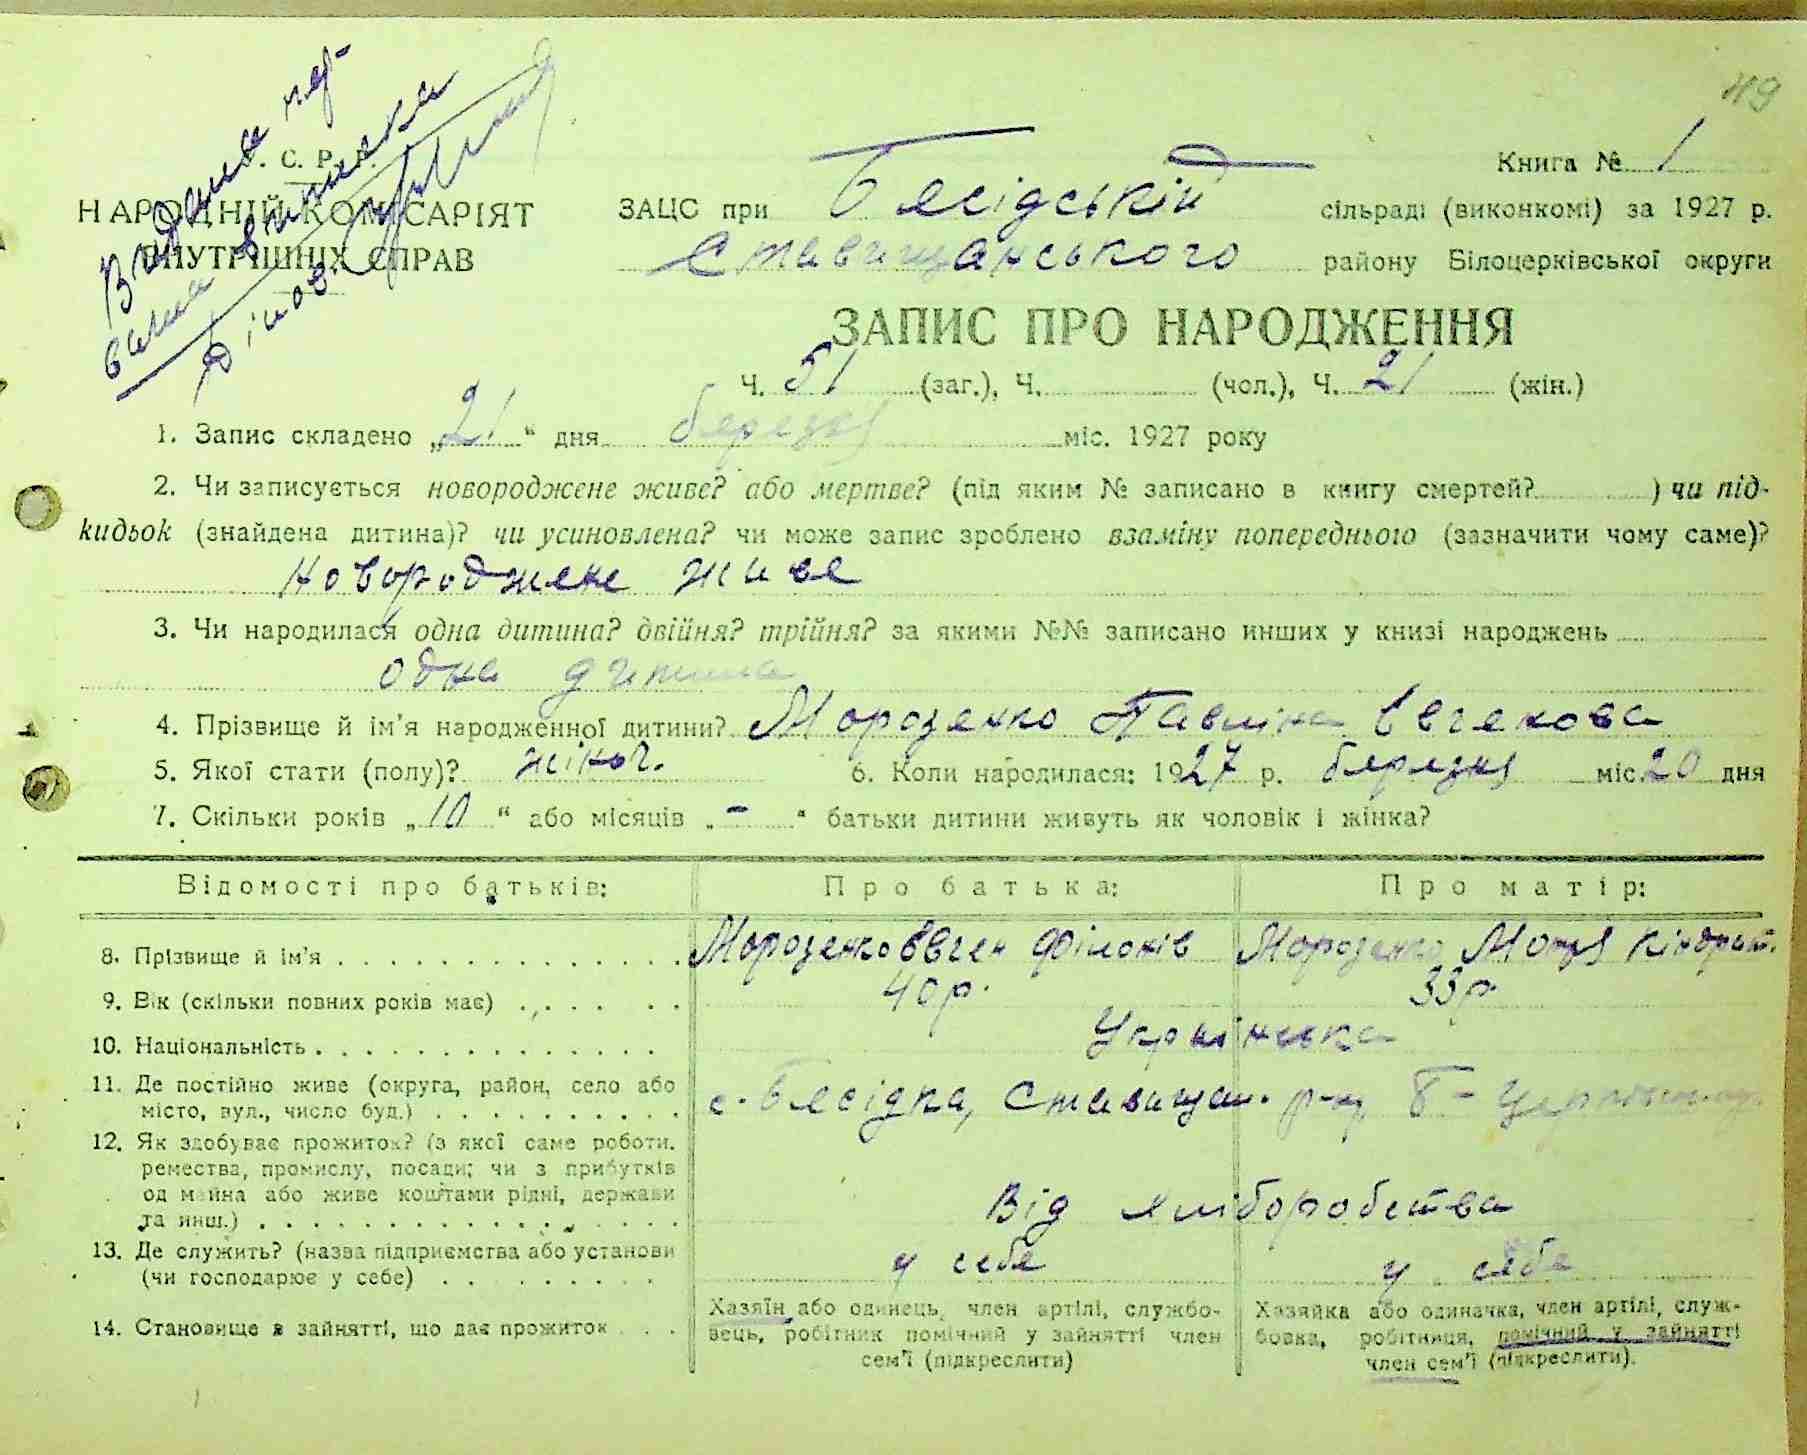 49
Видана пер-
вісна виписка
У. С. Р. Р.
НАРОДНІЙ КОМІСАРІЯТ
ВНУТРІШНІХ СПРАВ
Книга № 1
ЗАЦС при Бесідській сільраді (виконкомі) за 1927 р.
Ставищанського району Білоцерківської округи
ЗАПИС ПРО НАРОДЖЕННЯ
Ч. 51 (заг.), Ч. (чол.), Ч. 21 (жін.)
1. Запис складено „21“ дня березня міс. 1927 року
2. Чи записується новороджене живе? або мертве? (під яким № записано в книгу смертей? ) чи під-
кидьок (знайдена дитина)? чи усиновлена? чи може запис зроблено взаміну попереднього (зазначити чому саме)?
Новороджене живе
3. Чи народилася одна дитина? двійня? трійня? за якими №№ записано инших у книзі народжень
одна дитина
4. Прізвище й ім'я народженної дитини? Морозенко Павліна Євгенова
5. Якої стати (полу)? жіноч. 6. Коли народилася: 1927 р. березня міс. 20 дня
7. Скільки років „10“ або місяців „-“ батьки дитини живуть як чоловік і жінка?
Відомості про батьків: Про батька: Про матір:
8. Прізвище й ім'я Морозенко Євген Філонів Морозенко Мотя Кіндрат.
9. Вік (скільки повних років має) 40 р. 33 р.
10. Національність Українська
11. Де постійно живе (округа, район, село або
місто, вул., число буд.) с. Бесідка, Ставищан. р-ну Б-Церківськ.
12. Як здобуває прожиток? (з якої саме роботи,
ремества, промислу, посади; чи з прибутків
од майна або живе коштами рідні, держави
та инш.) Від хліборобства
13. Де служить? (назва підприємства або установи
(чи господарює у себе) у себе у себе
14. Становище в зайнятті, що дає прожиток
Хазяїн або одинець, член артілі, службо-
вець, робітник помічний у зайнятті член
сем'ї (підкреслити)
Хазяйка або одиначка, член артілі, служ-
бовка, робітниця, помічний у зайнятті
член сем'ї (підкреслити).